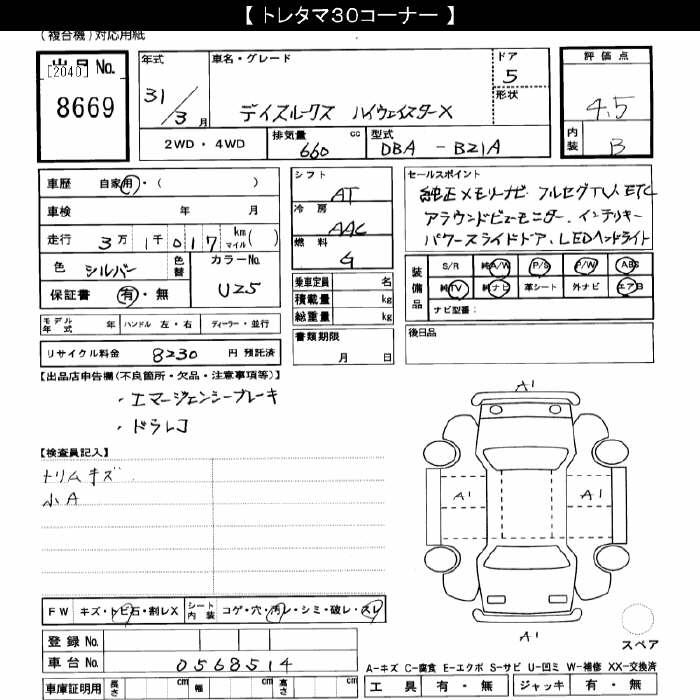 【 トレタマ30コーナー 】
(複合機)対応用紙
出品No.
[2040]
8669
年式
31/3月
車名・グレード
デイズルークス ハイウェイスターX
ドア
5
形状
評価点
4.5
内装
B
2WD・4WD
排気量
660
cc
型式
DBA - B21A
車歴 自家用・( )
車検 年 月
走行 3万1千017 km マイル( )
色 シルバー
色替
カラーNo.
U25
保証書 有・無
シフト
AT
冷房
AAC
燃料
G
乗車定員 名
積載量 kg
総重量 kg
セールスポイント
純正メモリナビ フルセグTV ETC
アラウンドビューモニター、インテリキー
パワースライドドア、LEDヘッドライト
装備品
S/R 純A/W P/S P/W ABS
純TV 純ナビ 革シート 外ナビ エアB
ナビ型番:
モデル年式 年 ハンドル 左・右 ディーラー・並行
リサイクル料金 8230 円 預託済
書類期限
月 日
後日品
【出品店申告欄(不良箇所・欠品・注意事項等)】
・エマージェンシーブレーキ
・ドラレコ
【検査員記入】
トリムキズ
小A
A1
A1
A1
A1
スペア
FW キズ・トビ石・割レX
シート内装 コゲ・穴・汚レ・シミ・破レ・スレ
登録No.
車台No. 0568514
車庫証明用 長さ cm 幅 cm 高さ cm
A-キズ C-腐食 E-エクボ S-サビ U-凹ミ W-補修 XX-交換済
工具 有・無 ジャッキ 有・無